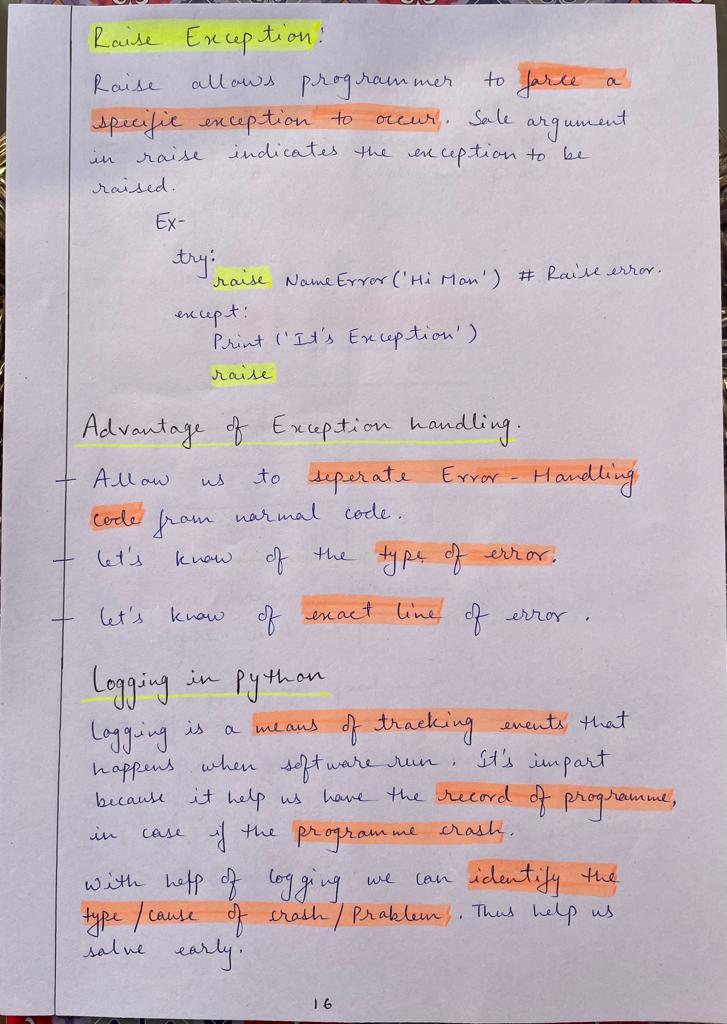 Raise Exception:
Raise allows programmer to force a
specific exception to occur. Sole argument
in raise indicates the exception to be
raised.
Ex-
try:
raise NameError ('Hi Man') # Raise error.
except:
Print ('It's Exception')
raise
Advantage of Exception handling.
- Allow us to seperate Error - Handling
code from normal code.
- let's know of the type of error.
- let's know of exact line of error.
Logging in python
Logging is a means of tracking events that
happens when software run. It's impart
because it help us have the record of programme,
in case if the programme crash.
With help of logging we can identify the
type / cause of crash / Problem. Thus help us
solve early.
16